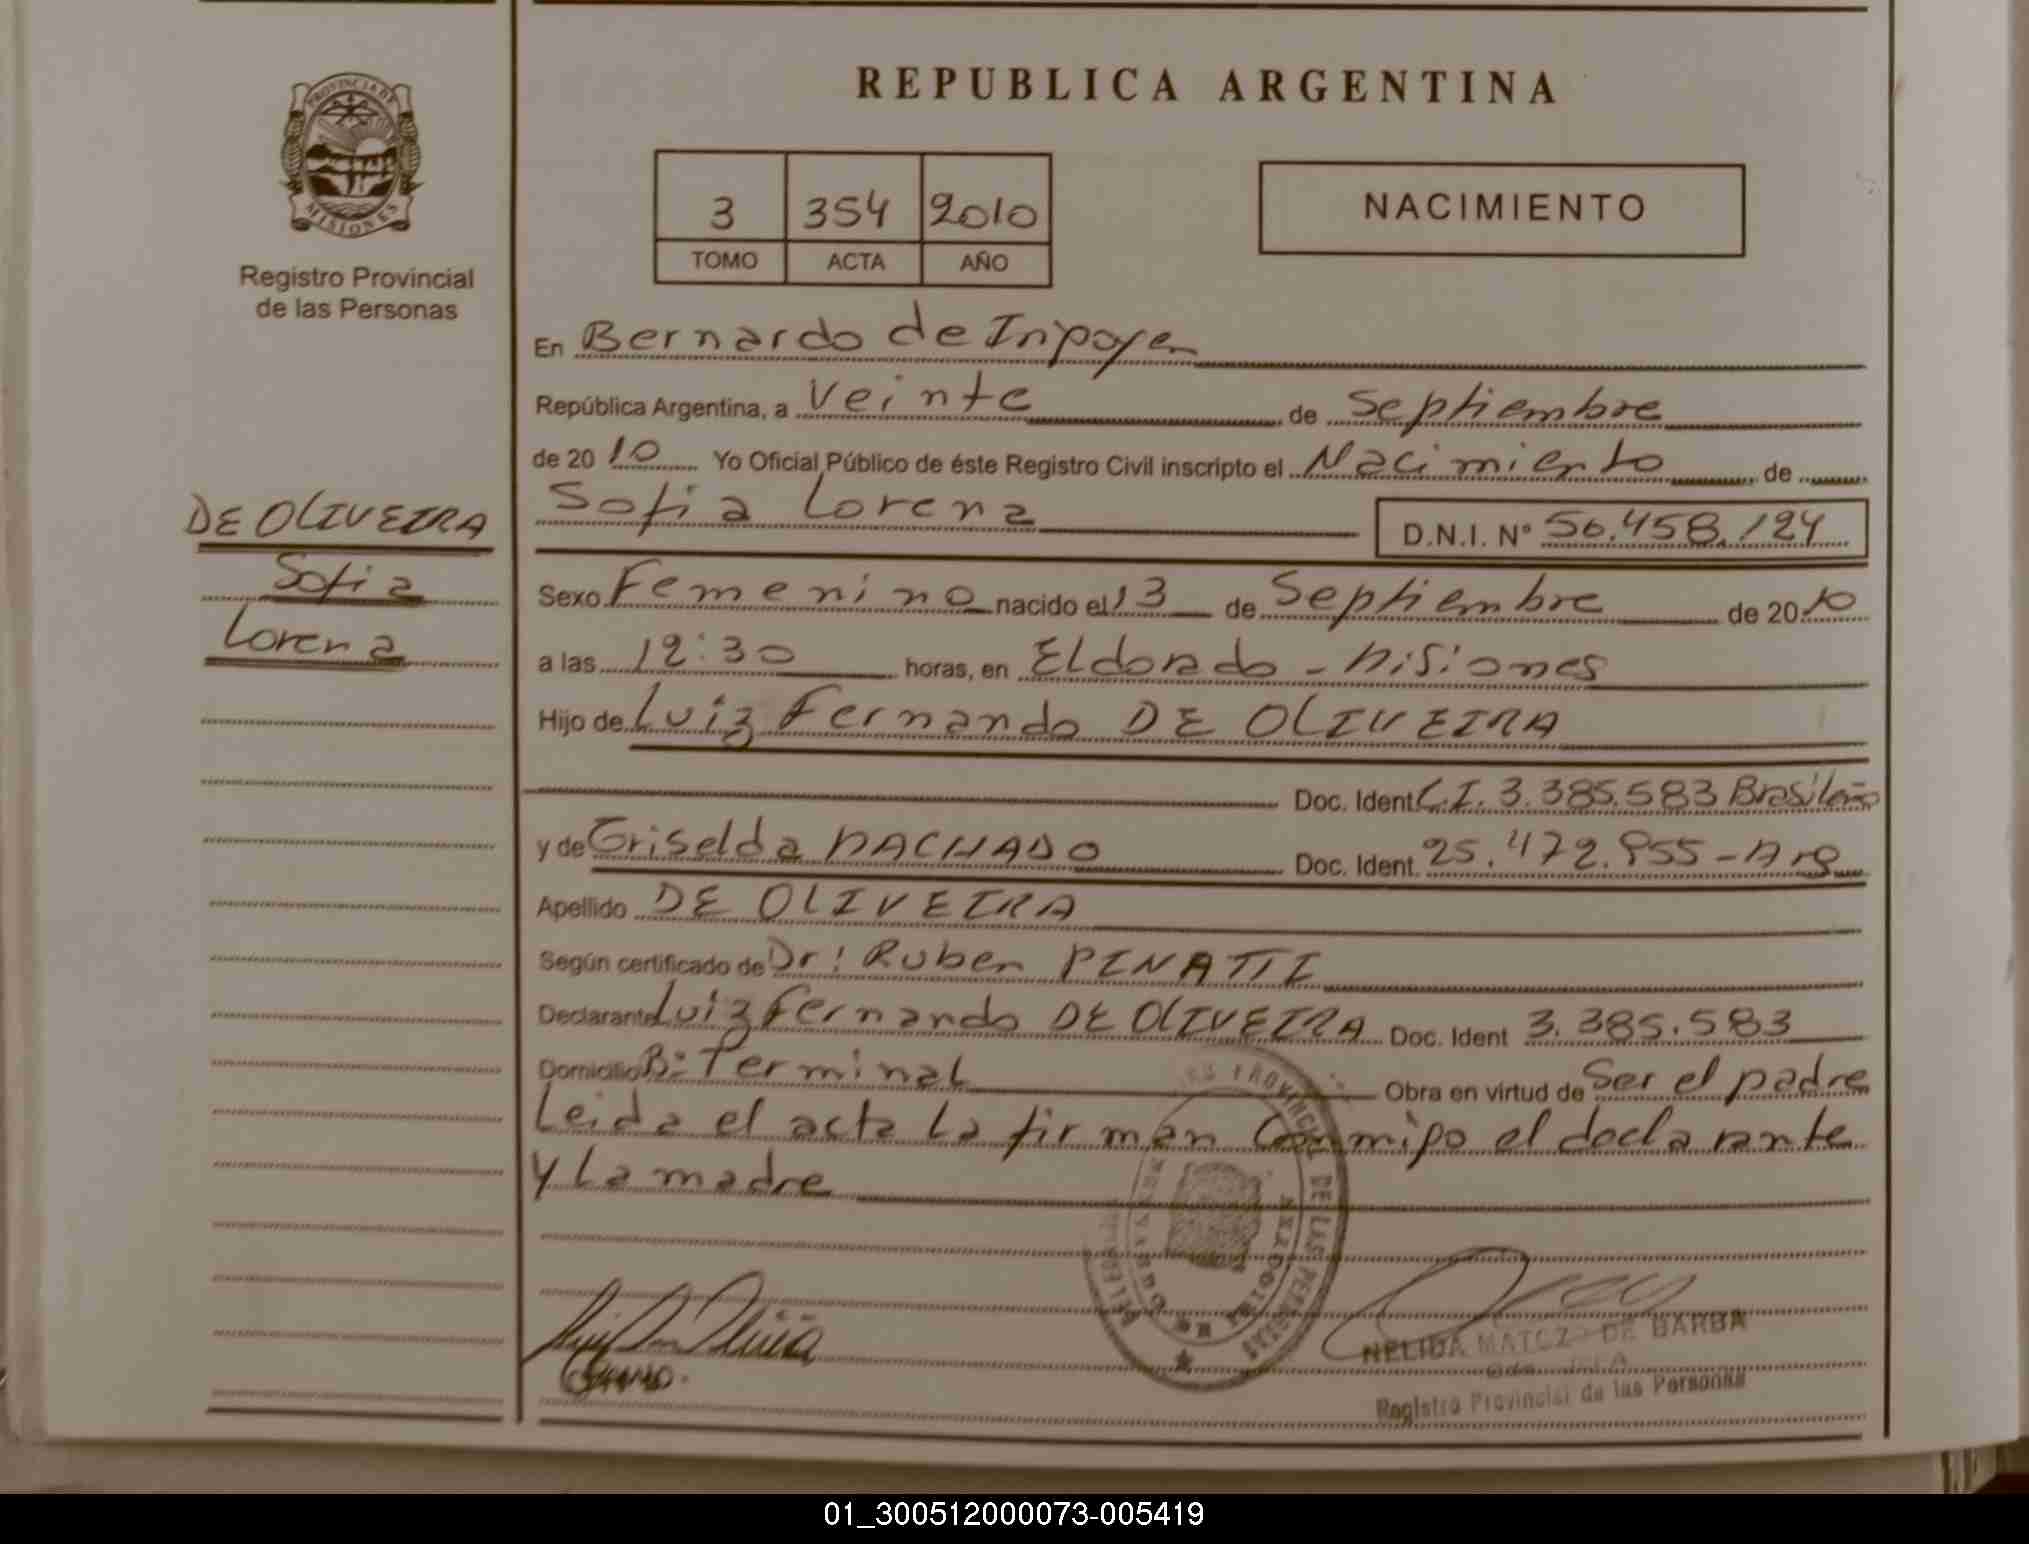 REPUBLICA ARGENTINA
PROVINCIA DE
MISIONES
Registro Provincial
de las Personas
3 354 2010
TOMO ACTA AÑO
NACIMIENTO
En Bernardo de Irigoyen
República Argentina, a Veinte de Septiembre
de 2010 Yo Oficial Público de éste Registro Civil inscripto el Nacimiento de
Sofia Lorena D.N.I. N° 50.458.124
DE OLIVEIRA
Sofia
Lorena
Sexo Femenino nacido el 13 de Septiembre de 2010
a las 12:30 horas, en Eldorado - Misiones
Hijo de Luiz Fernando DE OLIVEIRA
Doc. Ident C.I. 3.385.583 Brasileño
y de Griselda MACHADO Doc. Ident. 25.472.855 - Arg
Apellido DE OLIVEIRA
Según certificado de Dr: Ruben PINATTI
Declarante Luiz Fernando DE OLIVEIRA Doc. Ident 3.385.583
Domicilio B: Terminal Obra en virtud de Ser el padre
Leida el acta la firman conmigo el declarante
y la madre
PROVINCIAL DE LAS PERSONAS
NELIDA DE BARBA
Registro Provincial de las Personas
01_300512000073-005419